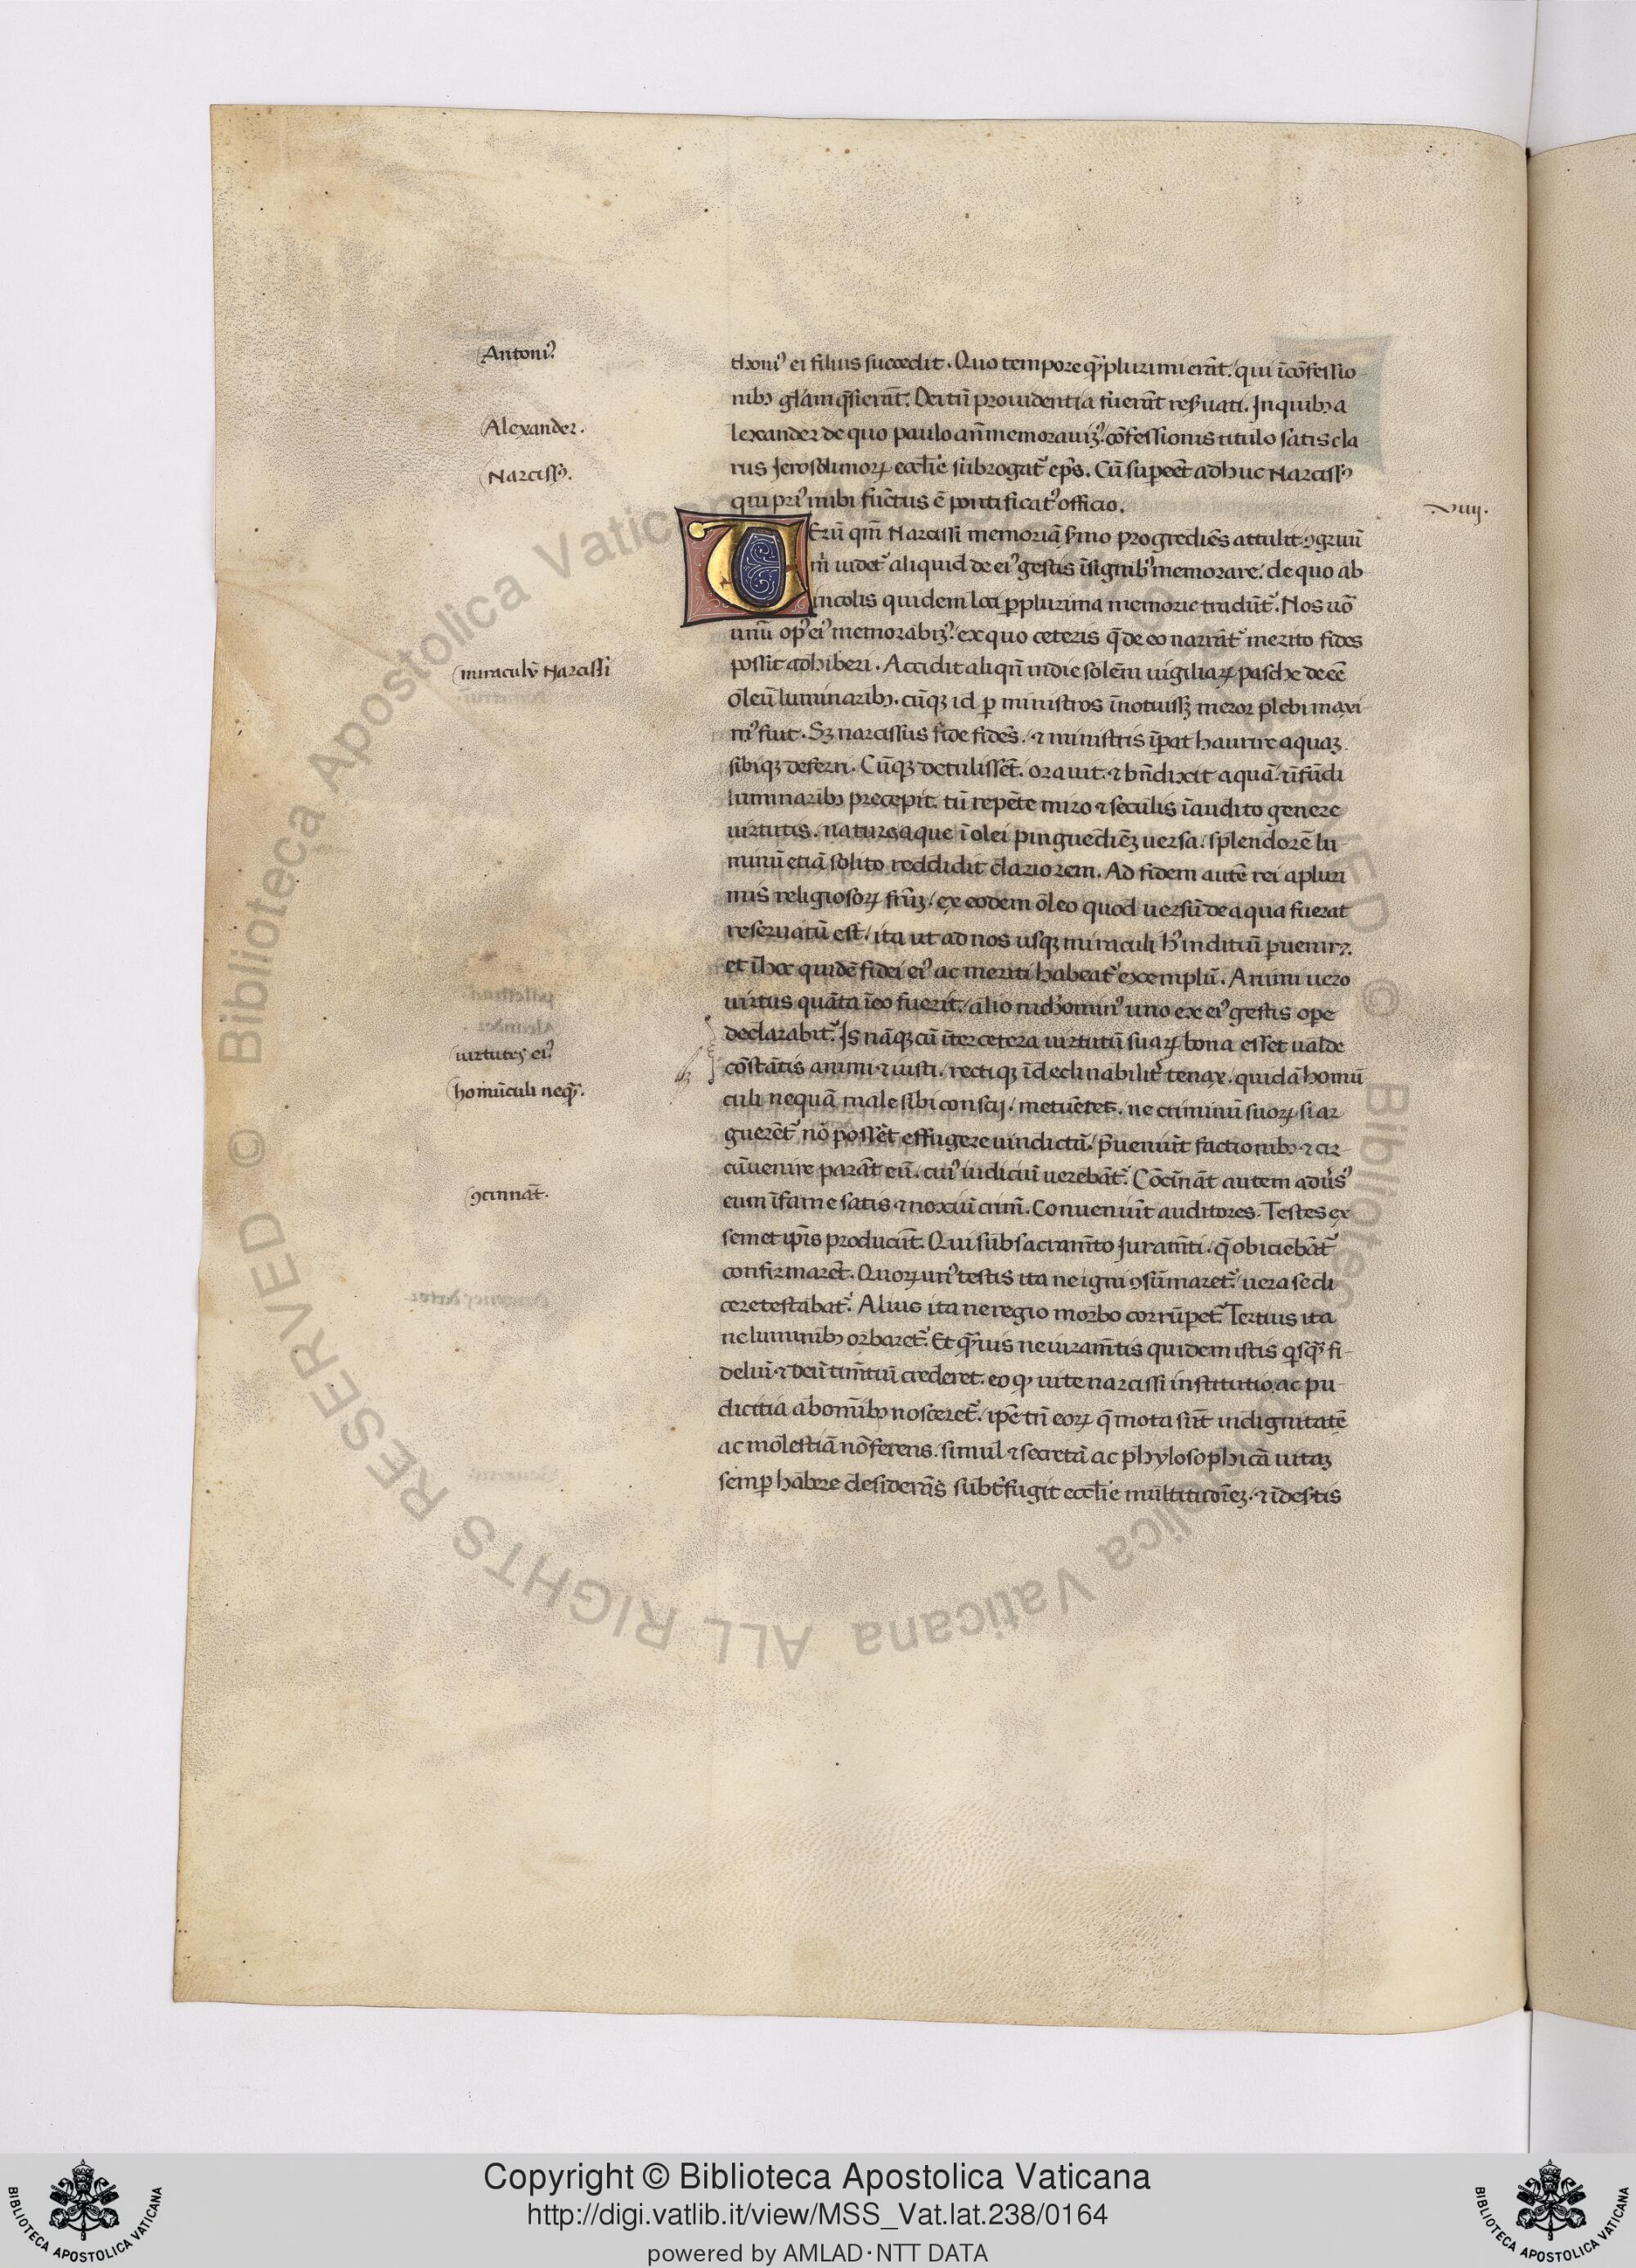 Antoniꝰ
Alexander.
Narcissꝰ.
miraculū Narcissi
uirtutes eiꝰ
homūculi neqͣ̄.
ꝯcinnāt.
thoniꝰ ei filius succedit. Quo tempore qͣ̄plurimi erāt. qui ī cōfessio
nibꝫ glām q̄sierāt. Dei tn̄ prouidentia fuerāt reẜuati. In quibꝫ a
lexander de quo paulo an̄ memorauimꝰ. cōfessionis titulo satis cla
rus Jerosolimoꝝ eccl̄ie subrogatʳ ep̄s. Cū supeēt adhuc Narcissꝰ
qui priꝰ inibi fūctus ē pontificatꝰ officio.
viiij.
UErū qm̄ Narcissi memoriā ẜmo progrediēs attulit ꝯgruū
m̄ uidetʳ aliquid de eiꝰ gestis īsignibꝰ memorare. de quo ab
incolis quidem loci ꝑplurima memorie tradūtʳ. Nos uō
unū opꝰ eiꝰ memorabimꝰ. ex quo ceteris q̄ de eo narrātʳ merito fides
possit adhiberi. Accidit aliqn̄ in die solēni uigiliaꝝ pasche deeē
oleū luminaribꝫ. cūqꝫ id ꝑ ministros īnotuissꝫ meror plebi maxi
mꝰ fiut. Sꝫ narcissus fide fidēs. ⁊ ministris īꝑat haurire aquaꝫ
sibiqꝫ deferri. Cūqꝫ detulissēt. orauit. ⁊ bn̄dixit aquā. īfūdi
luminaribꝫ precepit. tū repēte miro ⁊ seculis īaudito genere
uirtutis. natura aque ī olei pinguedīeꝫ uersa. splendorē lu
minū etiā solito reddidit clariorem. Ad fidem autē rei a pluri
mis religiosoꝝ fr̄uꝫ. ex eodem oleo quod uersū de aqua fuerat
reseruatū est. ita ut ad nos usqꝫ miraculi hꝰ inditiū ꝑuenirꝫ.
et ī hoc quidē fidei eiꝰ ac meriti habeatʳ exemplū. Animi uero
uirtus quāta ī eo fuerit. alio nichominꝰ uno ex eiꝰ gestis ope
declarabitʳ. Is nāqꝫ cū īter cetera uirtutū suaꝝ bona esset ualde
cōstātis animi ⁊ iusti. rectiqꝫ īdeclinabilitʳ tenax. quidā homū
culi nequā male sibi conscij. metuētes. ne criminū suoꝝ si ar
guerētʳ nō possēt effugere uindictā. p̄ueniūt factionibꝫ. ⁊ cir
cūuenire parāt eū. cuiꝰ iudiciū uerebātʳ. Cōcīnāt autem adūsꝰ
eum īfame satis ⁊ noxiū crim̄. Conueniūt auditores. Testes ex
semet ip̄is producūt. Qui sub sacram̄to Juram̄ti. q̄ obiciebātʳ
confirmarēt. Quoꝝ unꝰ testis ita ne igni ꝯsūmaretʳ. uera se di
cere testabatʳ. Alius ita ne regio morbo corrūpetʳ. Tertius ita
ne luminibꝫ orbaretʳ. Et qͣ̄uis ne iuram̄tis quidem istis qͥsqͣ̄ fi
deliū. ⁊ deū tim̄tiū crederet. eo qꝫ uite narcissi institutio ac pu
dicitia ab omībꝫ nosceretʳ. ip̄e tn̄ eoꝝ q̄ mota sūt indignitatē
ac molestiā nō ferens. simul ⁊ secretā ac phylosophicā uitaꝫ
semꝑ habere desiderās subtʳfugit eccl̄ie multitudīeꝫ. ⁊ ī destis
Copyright © Biblioteca Apostolica Vaticana
http://digi.vatlib.it/view/MSS_Vat.lat.238/0164
powered by AMLAD·NTT DATA
BIBLIOTECA APOSTOLICA VATICANA
BIBLIOTECA APOSTOLICA VATICANA